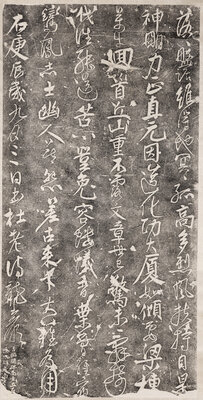 落落盤踞雖得地冥冥孤高多烈風扶持自是
神明力正直元因造化功大廈如傾要梁棟
萬牛迴首丘山重不露文章世已驚未辭剪
伐誰能送苦心豈免容螻蟻香葉終經宿
鸞鳳志士幽人莫怨嗟古來材大難為用
右庚辰歲九月二日書杜老詩